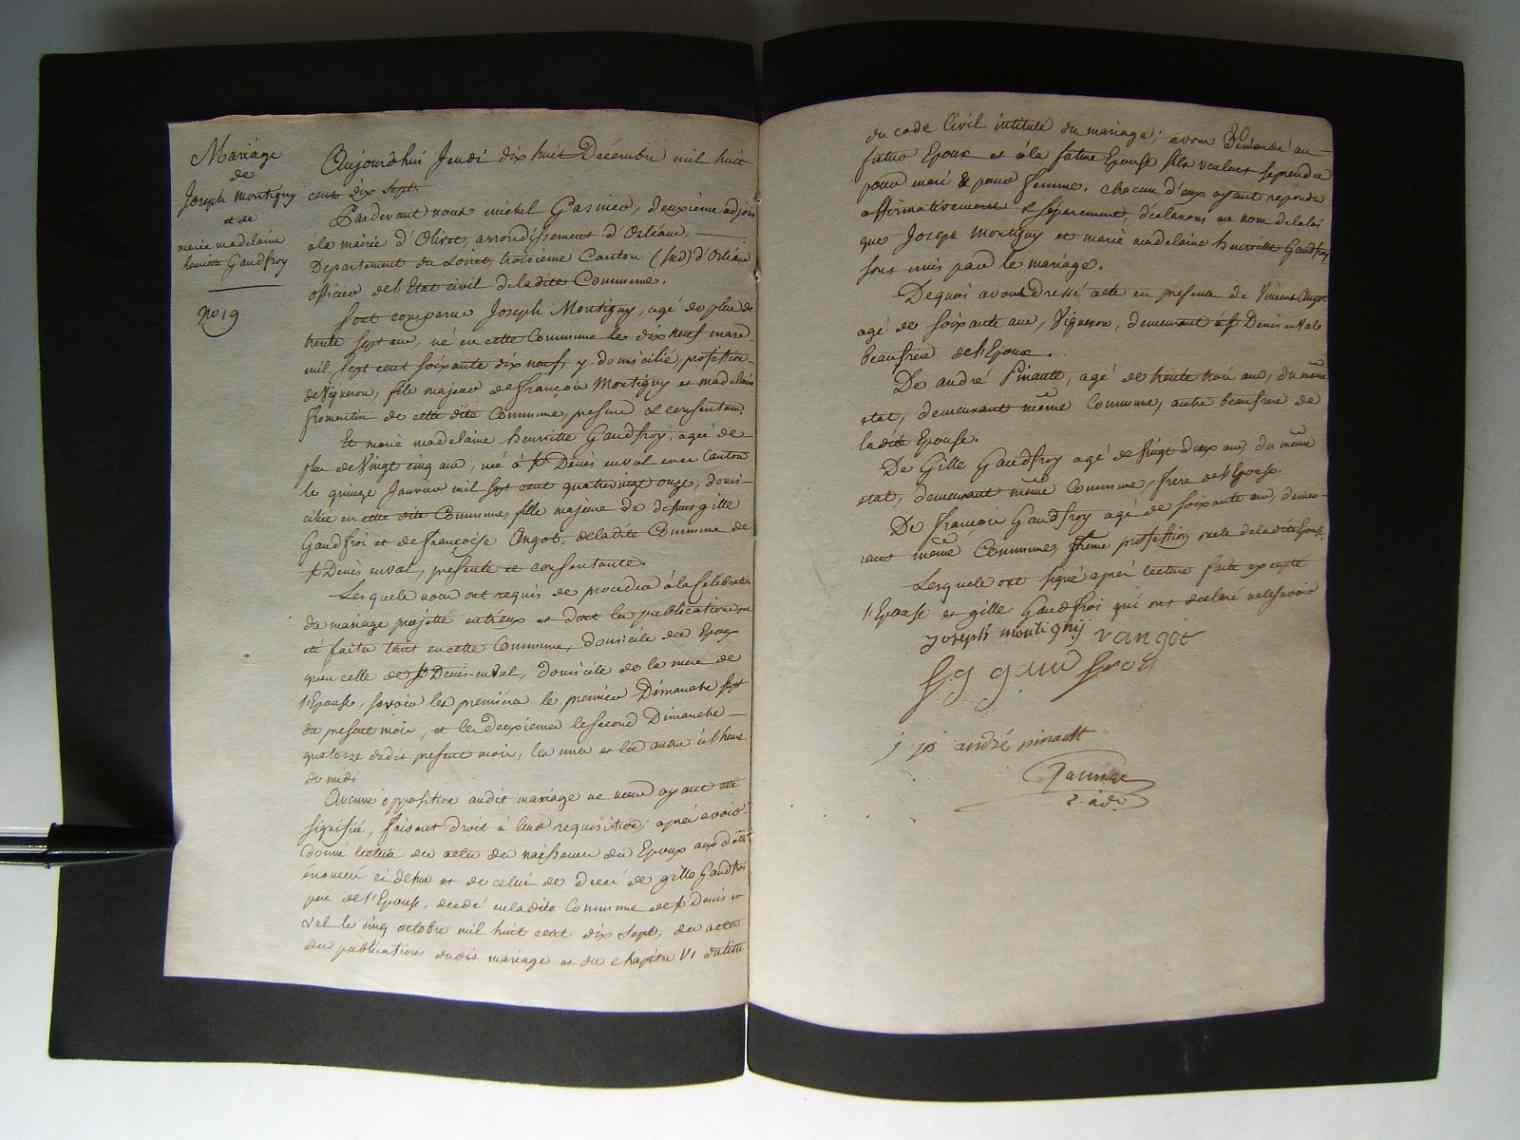 Mariage
de
Joseph Montigny
et de
marie madelaine
henriette Gaudfroy
No 19
Aujourdhui Jeudi dix huit Décembre mil huit
cent dix sept.
Pardevant nous michel Garnier, deuxième adjoint
à la mairie d'Olivet, arrondissement d'Orléans,
Departement du Loiret, troisième Canton (sud) d'Orléans
officier de l'Etat civil de ladite Commune.
Sont comparus Joseph Montigny, agé de plus de
trente sept ans, né en cette Commune le dix neuf mars
mil sept cent soixante dix neuf, y domicilié, profession
de Vigneron, fils majeur de françois Montigny et madelaine
fromentin de cette dite Commune, présens et consentans
Et marie madelaine henriette Gaudfroy, agée de
plus de Vingt cinq ans, née à St Denis en val même Canton
le quinze Janvier mil sept cent quatrevingt onze, domi-
ciliée en cette dite Commune, fille majeure de defunt gille
Gaudfroi et de françoise Angot, de ladite Commune de
St Denis en val, présente et consentante.
Lesquels nous ont requis de procéder à la Célébration
du mariage projetté entr'eux et dont les publications ont
été faites tant en cette Commune, domicile des Epoux
qu'en celle de St Denis-en-Val, domicile de la mère de
l'Epouse, savoir les premières le premier Dimanche sept
du présent mois, et les deuxièmes le second Dimanche
quatorze dudit présent mois, les unes et les autres à l'heure
de midi
Aucune opposition audit mariage ne nous ayant été
signifiée, faisant droit à leur requisition; après avoir
donné lecture des actes de naissance des Epoux aux dates
énoncées ci dessus et de celui de décès de gille Gaudfroi
père de l'Epouse, décédé en ladite Commune de St Denis en
val le cinq octobre mil huit cent dix sept, des actes
de publications dudit mariage et du chapitre VI du titre
du code Civil intitulé du mariage; avons Démandé au
futur Epoux et à la future Epouse s'ils veulent se prendre
pour mari & pour femme. chacun d'eux ayant repondu
affirmativement & séparément, déclarons au nom de la loi
que Joseph Montigny et marie madelaine henriette Gaudfroy
sont unis par le mariage.
De quoi avons dressé acte en présence de Vincent Angot
agé de soixante ans, Vigneron, demeurant à St Denis en Val
beaufrere de l'Epoux.
De andré Pinault, agé de trente trois ans, du même
etat, demeurant même Commune, autre beaufrere de
ladite Epouse.
De Gille Gaudfroy agé de Vingt deux ans, du même
etat, demeurant même Commune, frere de l'Epouse.
De françois Gaudfroy agé de soixante ans, demeu-
rant même Commune, même profession, oncle de ladite Epouse.
Lesquels ont signé après lecture faite excepté
l'Epouse et gille Gaudfroi qui ont déclaré ne le savoir
Joseph montignÿ vangot
fg gaudfroi
andré pinault
Garnier
2e adt